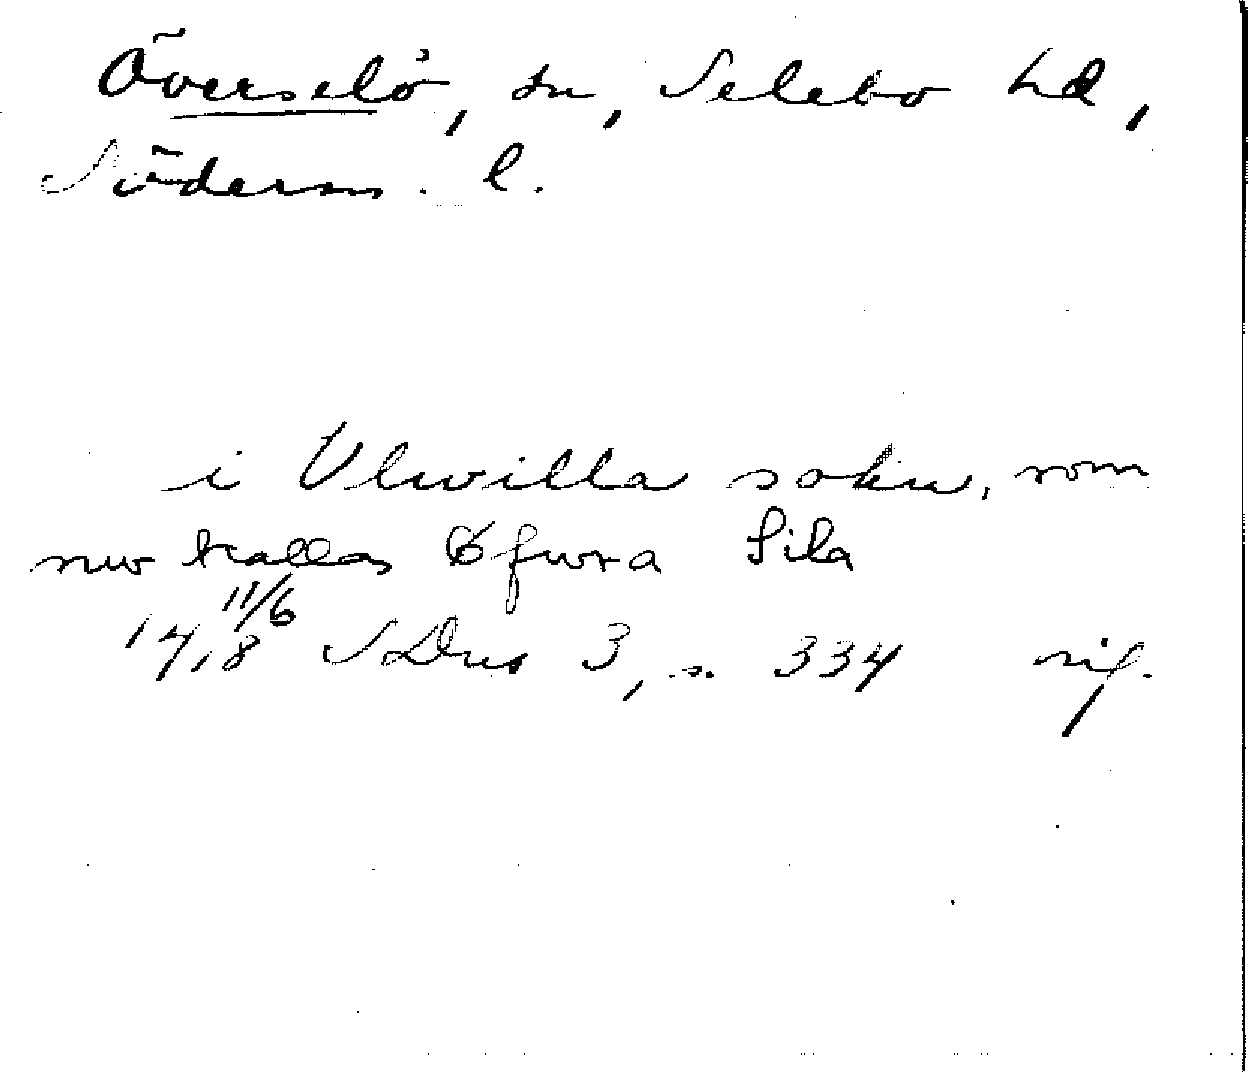 Överselö, sn, Selebo hd,
Söderm. l.
i Ulwilla sokn, som
nw kallas Öfwra Sila
11/6
1418 SDns 3, s. 334